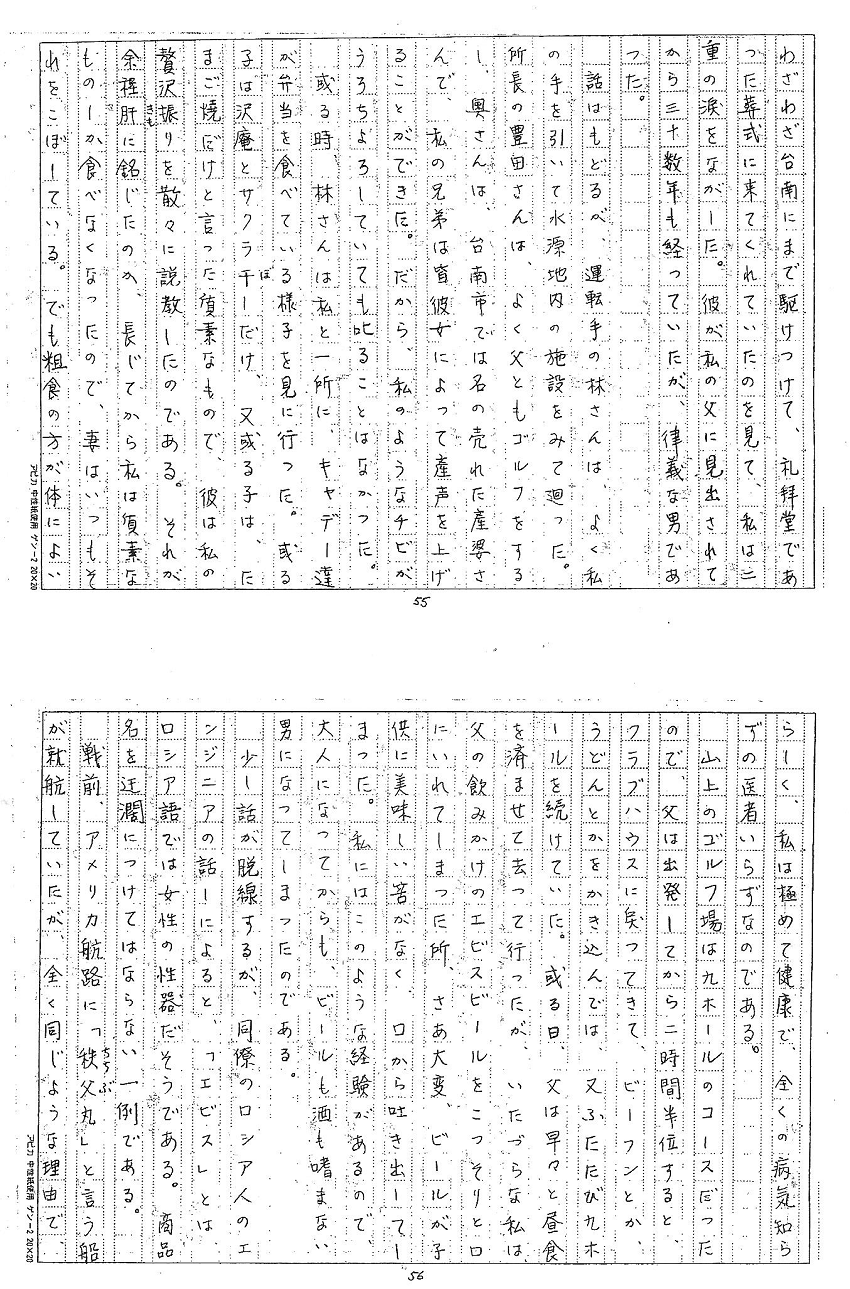 わざわざ台南にまで駆けつけて、礼拝堂であ
った葬式に来てくれていたのを見て、私は二
重の涙をながした。彼が私の父に見出されて
から三十数年も経っていたが、律義な男であ
った。
話はもどるが、運転手の林さんは、よく私
の手を引いて水源地内の施設をみて廻った。
所長の豊田さんは、よく父ともゴルフをする
し、奥さんは、台南市では名の売れた産婆さ
んで、私の兄弟は皆彼女によって産声を上げ
ることができた。だから、私のようなチビが
うろちょろしていても叱ることはなかった。
或る時、林さんは私と一所に、キャデー達
が弁当を食べている様子を見に行った。或る
子は沢庵とサクラ干しだけ、又或る子は、た
まご焼だけと言った質素なもので、彼は私の
贅沢振りを散々に説教したのである。それが
余程肝に銘じたのか、長じてから私は質素な
ものしか食べなくなったので、妻はいつもそ
れをこぼしている。でも粗食の方が体によい
アピカ 中性紙使用 ゲンー2 20×20
55
らしく、私は極めて健康で、全くの病気知ら
ずの医者いらずなのである。
山上のゴルフ場は九ホールのコースだった
ので、父は出発してから二時間半位すると、
クラブハウスに戻ってきて、ビーフンとか、
うどんとかをかき込んでは、又ふたたび九ホ
ールを続けていた。或る日、父は早々と昼食
を済ませて去って行ったが、いたづらな私は、
父の飲みかけのエビスビールをこっそりと口
にいれてしまった所、さあ大変、ビールが子
供に美味しい筈がなく、口から吐き出してし
まった。私にはこのような経験があるので、
大人になってからも、ビールも酒も嗜まない
男になってしまったのである。
少し話が脱線するが、同僚のロシア人のエ
ンジニアの話しによると、「エビス」とは、
ロシア語では女性の性器だそうである。商品
名を迂濶につけてはならない一例である。
戦前、アメリカ航路に「秩父丸」と言う船
が就航していたが、全く同じような理由で、
アピカ 中性紙使用 ゲンー2 20×20
56